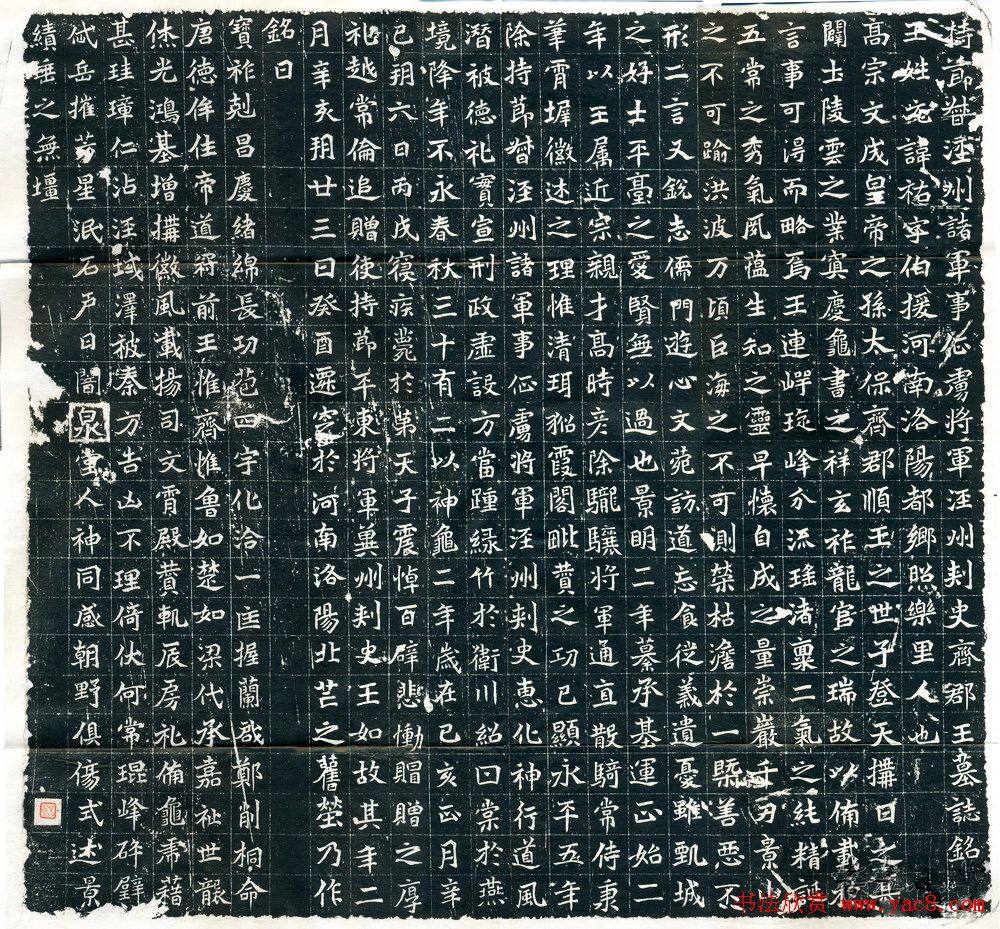 持節督涇州諸軍事征虜將軍涇州刺史齊郡王墓誌銘
王姓元諱祐字伯援河南洛陽都鄉照樂里人也
高宗文成皇帝之孫太保齊郡順王之世子登天搆日之基
闢土陵雲之業寘慶龜書之祥玄祚龍官之瑞故以備載
言事可得而略焉王連嶂琁峰分流瑤渚稟二氣之純精
五常之秀氣夙蘊生知之靈早懷自成之量崇巖千刃景山
之不可踰洪波万頃巨海之不可測榮枯澹於一縣善惡不
形二言又銳志儒門遊心文苑訪道忘食從義遺憂雖甄城
之好士平臺之愛賢無以過也景明二年纂承基運正始二
年以王属近宗親才高時彥除驪驤將軍通直散騎常侍東
華霄墀徽述之理惟清珥貂霞閣毗贊之功已顯永平五年
除持節督涇州諸軍事征虜將軍涇州刺史惠化神行道風
潛被德礼實宣刑政虛設方當踵緑竹於衛川紹曰棠於燕
境降年不永春秋三十有二以神龜二年歲在己亥正月辛
已朔六日丙戌寢疾薨於第天子震悼百辟悲慟賵贈之厚
礼越常倫追贈使持節平東將軍冀州刺史王如故其年二
月辛亥朔廿三日癸酉遷窆於河南洛陽北芒之舊塋乃作
銘曰
寶祚剋昌慶緒綿長功苞四宇化洽一匡握蘭戡鄭削桐命
唐德侔仕帝道窮前王惟齊惟魯如楚如梁代承嘉祉世襲
休光鴻基增搆徽風載揚司文霄殿贊軌辰房礼備龜黹藉
甚珪璋仁沾涇域澤被秦方吉凶不理倚伏何常琨峰碎璧
岱岳摧芒星泯石戶日闇泉堂人神同感朝野俱傷式述景
績垂之無壃
书法欣赏 www.yac8.com